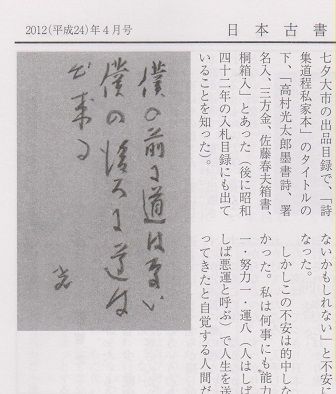 2012(平成24)年4月号
日本古書
七夕大市の出品目録で、「詩
集道程私家本」のタイトルの
下、「高村光太郎墨書詩、署
名入、三方金、佐藤春夫箱書、
桐箱入」とあった（後に昭和
四十二年の入札目録にも出て
いることを知った）。
ないかもしれない」と不安に
なった。
しかしこの不安は的中しな
かった。私は何事にも能力
一・努力一・運八（人はしば
しば悪運と呼ぶ）で人生を送
ってきたと自覚する人間だ
僕の前に道はない
僕の後ろに道は
出来る
光